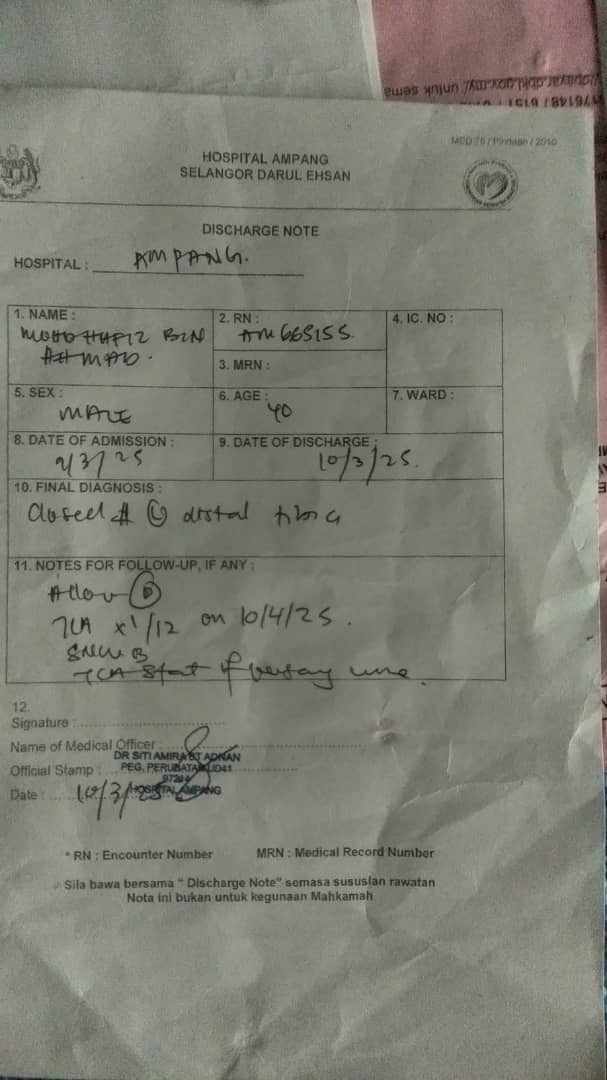 MED 76 / Pindaan / 2010
HOSPITAL AMPANG
SELANGOR DARUL EHSAN
DISCHARGE NOTE
HOSPITAL : AMPANG.
1. NAME :
MOHD HAFIZ BIN
AHMAD.
2. RN :
AM665155.
3. MRN :
4. IC. NO :
5. SEX :
MALE
6. AGE :
40
7. WARD :
8. DATE OF ADMISSION :
9/3/25
9. DATE OF DISCHARGE :
10/3/25.
10. FINAL DIAGNOSIS :
Closed # (L) distal tibia
11. NOTES FOR FOLLOW-UP, IF ANY :
Allow (D)
TCA x 1/12 on 10/4/25.
TCA Stat if
12.
Signature :
Name of Medical Officer :
DR SITI AMIRA BT ADNAN
Official Stamp : PEG. PERUBATAN UD41
HOSPITAL AMPANG
Date : 10/3/25
* RN : Encounter Number MRN : Medical Record Number
Sila bawa bersama " Discharge Note" semasa sususlan rawatan
Nota ini bukan untuk kegunaan Mahkamah